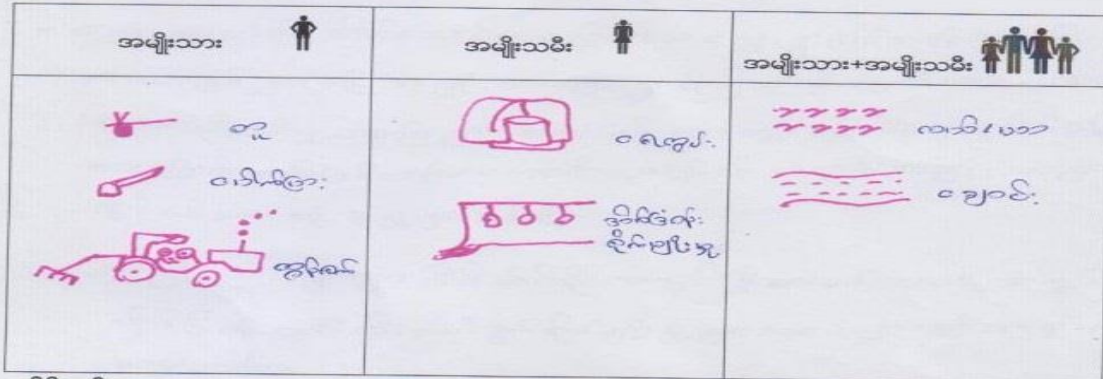 အမျိုးသား
အမျိုးသမီး
အမျိုးသား+အမျိုးသမီး
တူ
ပေါက်ပြား
ထွန်စက်
ရေတွင်း
အိမ်ခြံဝန်း
စိုက်ပျိုးသူ
ချောင်း